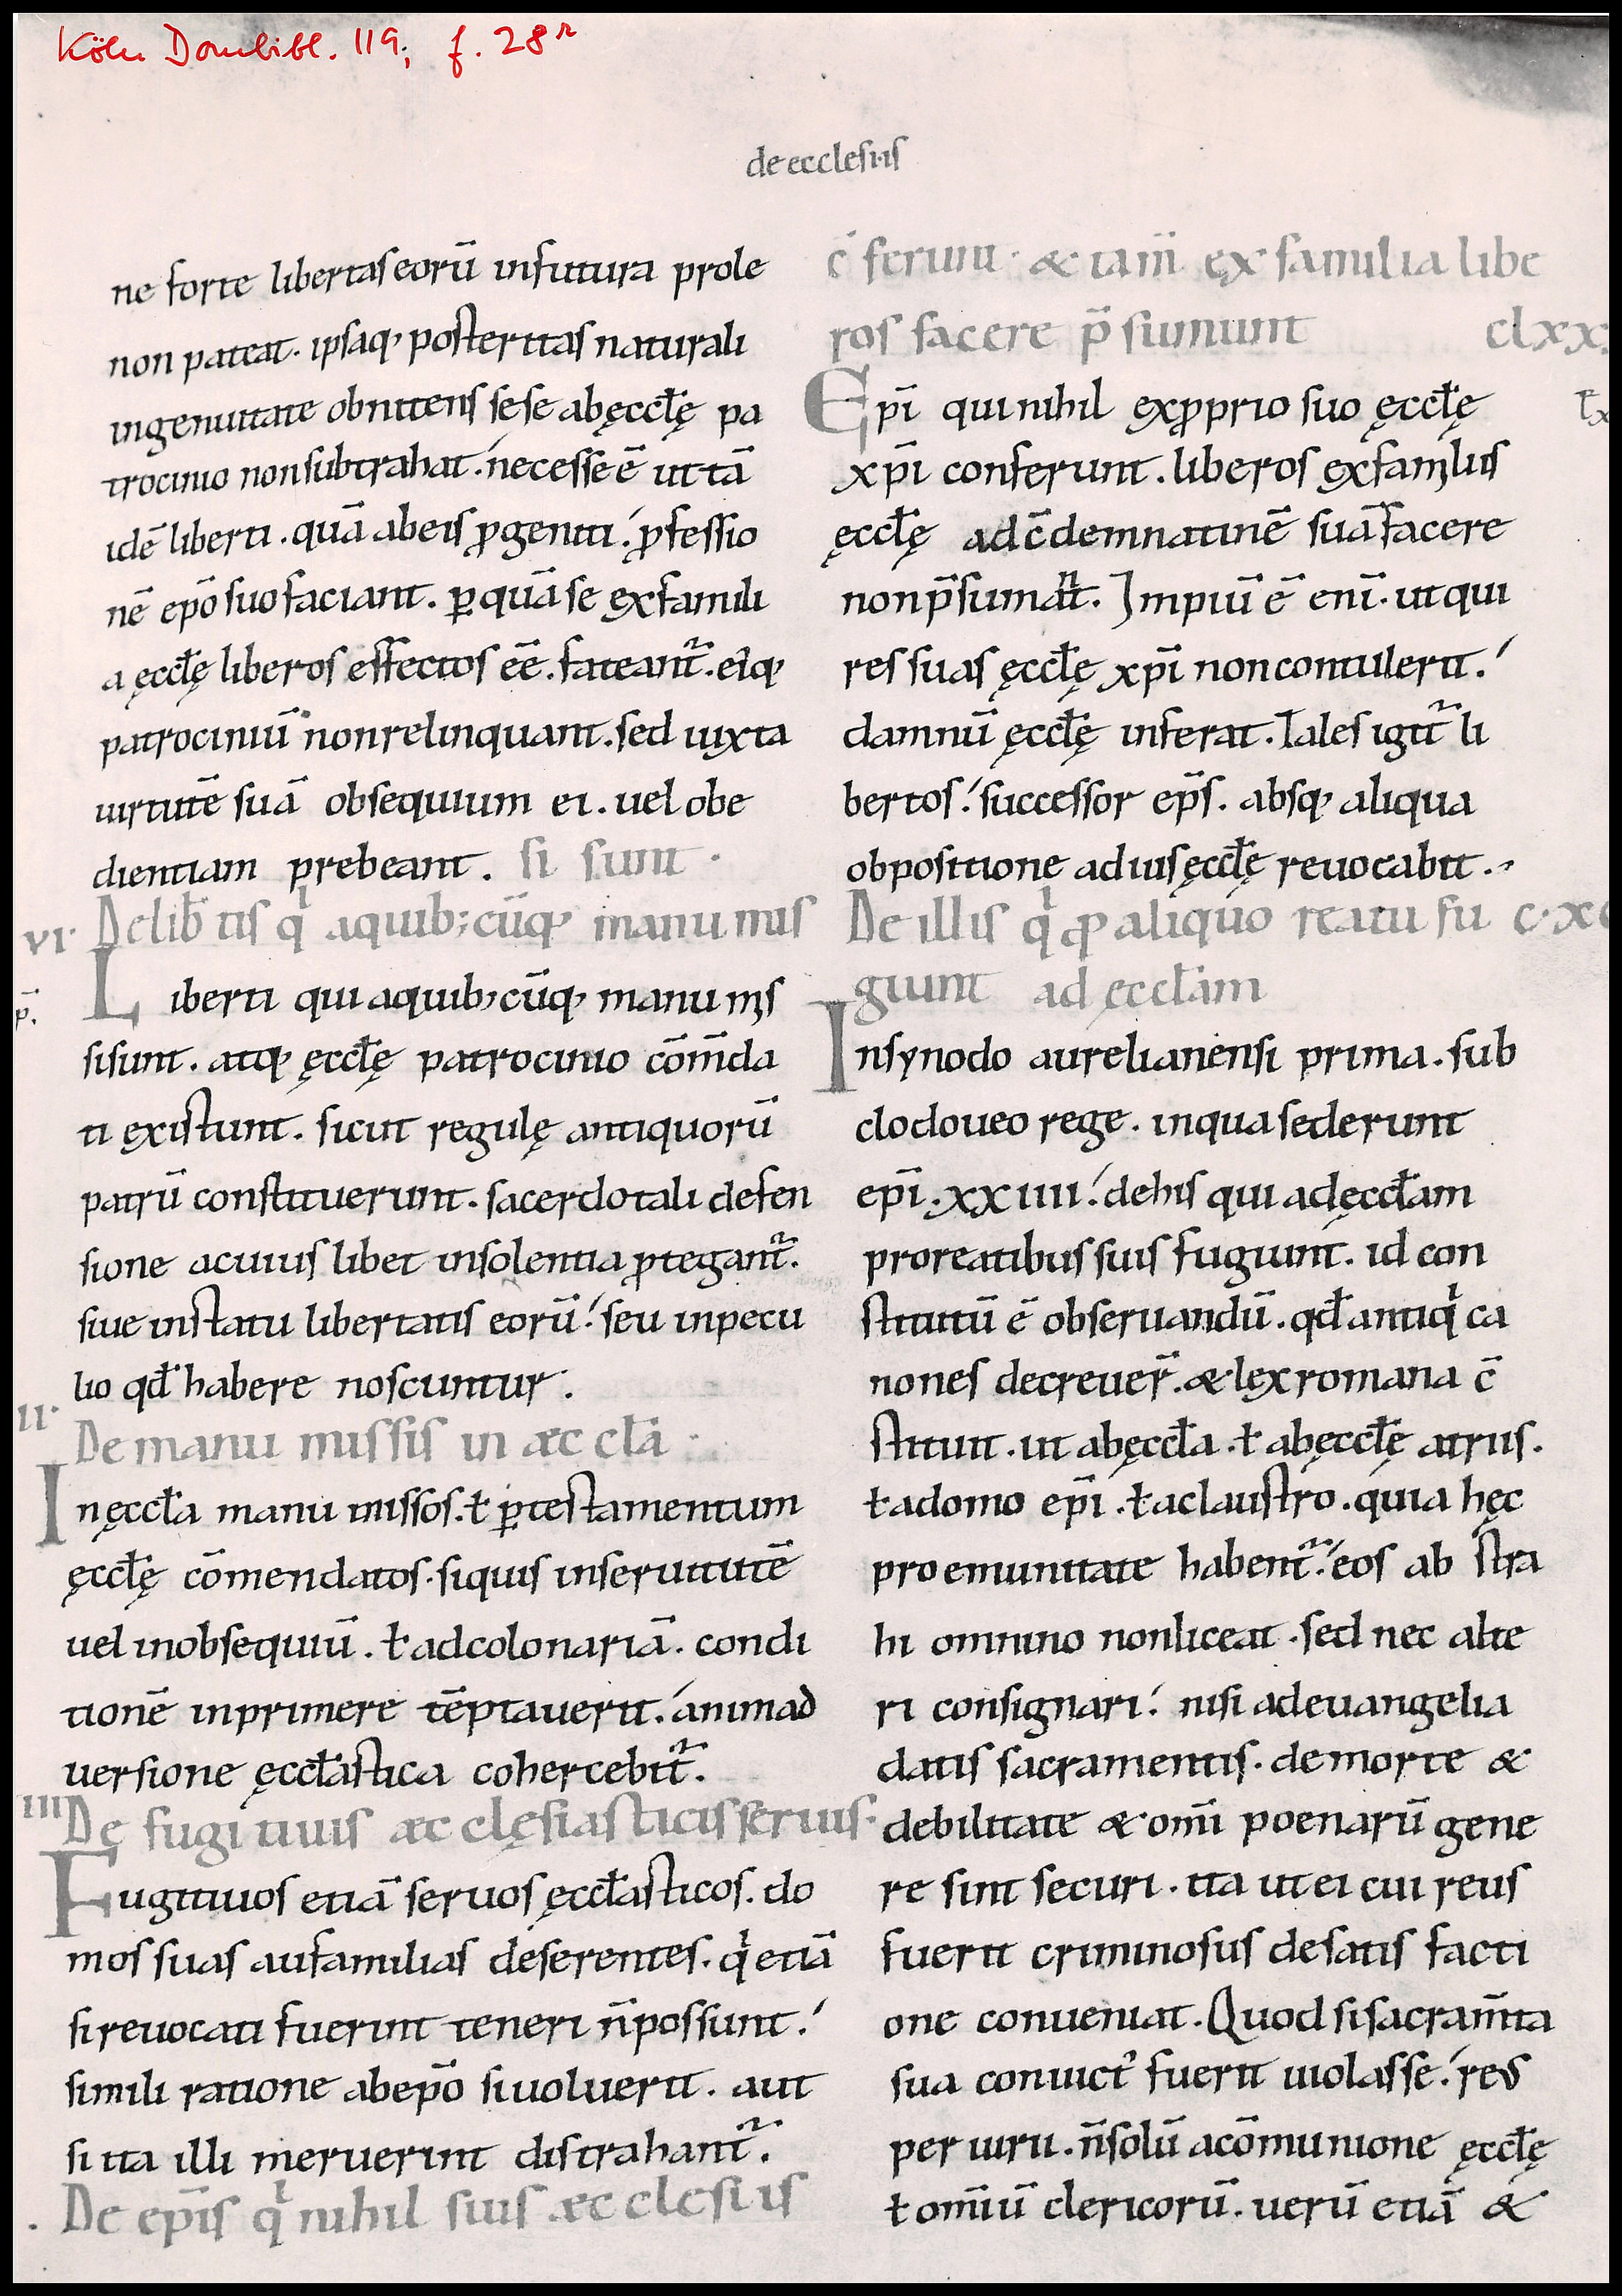 Köln Dombibl. 119; f. 28r
de ecclesiis
ne forte libertas eorū in futura prole
non pateat. ipsaq; posteritas naturali
ingenuitate obnitens sese ab ęccłę pa
trocinio non subtrahat. necesse ē ut tā
idē liberti. quā ab eis ꝓgeniti. ꝓfessio
nē ep̄o suo faciant. ꝑ quā se ex famili
a ęccłę liberos effectos eē. fateant᷑. eiꝰq;
patrociniū non relinquant. sed iuxta
uirtutē suā obsequium ei. uel obe
dientiam prebeant. si sunt.
VI. De lib̄tis qͥ a quib; cūq; manu mis
Liberti qui a quib; cūq; manu mis
si sunt. atq; ęccłę patrocinio cōm̄da
ti existunt. sicut regulę antiquorū
patrū constituerunt. sacerdotali defen
sione a cuius libet insolentia ꝓtegant᷑.
siue in statu libertatis eorū. seu in pecu
lio qđ habere noscuntur.
II. De manu missis in æccła.
In ęccła manu missos. ł ꝑ testamentum
ęccłę cōmendatos. siquis in seruitutē
uel in obsequiū. ł ad colonariā. condi
tionē inprimere tēptauerit. animad
uersione ęccłastica cohercebit᷑.
III De fugitiuis æcclęsiasticis seruis.
Fugitiuos etiā seruos ęccłasticos. do
mos suas au familias deserentes. qͥ etiā
si reuocati fuerint teneri n̄ possunt.
simili ratione ab ep̄o si uoluerit. aut
si ita illi meruerint distrahant᷑.
. De ep̄is qͥ nihil suis æcclesiis
c̄ferunt. & tam̄ ex familia libe
ros facere p̄sumunt clxx
Ep̄i qui nihil ex ꝓprio suo ęccłę
xp̄i conferunt. liberos ex familiis
ęccłę ad c̄demnatinē suā facere
non p̄sumant. Impiū ē eni. ut qui
res suas ęccłę xp̄i non contulerit.
damnū ęccłę inferat. Tales igit᷑ li
bertos. successor ep̄s. absq; aliqua
obpositione ad ius ęccłę reuocabit.
De illis qͥ ꝓ aliquo reatu fu c.xc
giunt ad ęccłam
In synodo aurelianensi prima. sub
clodoueo rege. in qua sederunt
ep̄i. xxiiii. de his qui ad ęccłam
pro reatibus suis fugiunt. id con
stitutū ē obseruandū. qđ antiqͥ ca
nones decreuer̄. & lex romana c̄
stituit. ut ab ęccła. ł ab ęccłę atriis.
ł a domo ep̄i. ł a claustro. quia hęc
pro emunitate habent᷑. eos ab stra
hi omnino non liceat. sed nec alte
ri consignari. nisi ad euangelia
datis sacramentis. de morte &
debilitate & om̄i poenarū gene
re sint securi. ita ut ei cui reus
fuerit criminosus de satis facti
one conueniat. Quod si sacram̄ta
sua conuictꝰ fuerit uiolasse. reus
per iurii. n̄ solū a cōmunione ęccłę
ł om̄iū clericorū. uerū etiā &